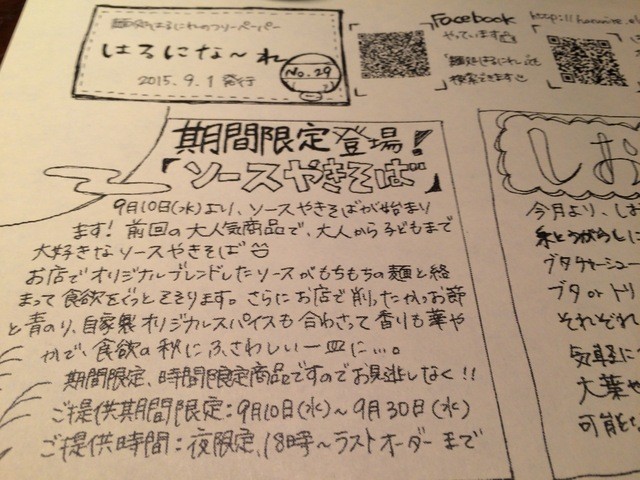 麺処はるにれのフリーペーパー
はるにな〜れ
No.29
2015.9.1 発行
Facebook
やっています
"麺処はるにれ"で
検索できます
期間限定登場!
「ソースやきそば」
9月10日(水)より、ソースやきそばが始まり
ます! 前回の大人気商品で、大人から子どもまで
大好きなソースやきそば
お店でオリジナルブレンドしたソースがもちもちの麺と絡
まって食欲をぐっとそそります。さらにお店で削ったかつお節
と青のり、自家製オリジナルスパイスも合わさって香りも華や
かで、食欲の秋にふさわしい一皿に…。
期間限定、時間限定商品ですのでお見逃しなく!!
ご提供期間限定:9月10日(水)〜9月30日(水)
ご提供時間:夜限定、18時〜ラストオーダーまで
しお
今月より、しお
米とうがらしに
ブタチャーシュー
ブタ or トリ
それぞれ
気軽に
大葉や
可能な